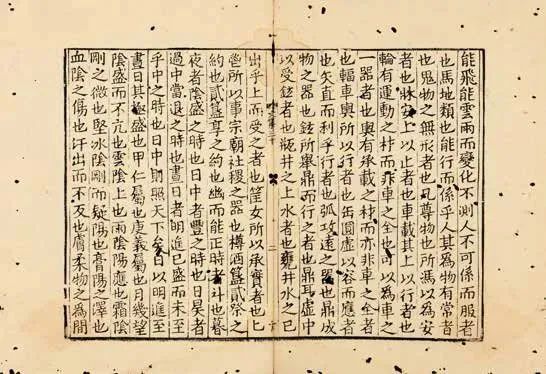 能飛能雲雨而變化不測人不可係而服者
也馬地類也能行而係乎人其爲物有常者
也鬼物之無形者也几尊物也所馮以爲安
者也牀安上以止者也車載其上以行者也
輪有運動之材而非車之全也可以爲車之
一器者也輿有承載之材而亦非車之全者
也輻車輿所以行者也缶圓虛以容而應者
也矢直而利乎行者也弧攻遠之器也鼎成
物之器也鉉所舉鼎而行之者也鼎耳虛中
以受鉉者也瓶井之上水者也甕井水之已
二
出乎上而受之者也筐女所以承實者也匕
鬯所以事宗廟社稷之器也樽酒簋貳祭之
約也貳簋享之約也幽而能正時者斗也暮
夜者陰盛之時也日中者豐之時也日昃者
過中當退之時也晝日者明進已盛而未至
乎中之時也日中則照天下矣曰以明進至
晝日其極盛也甲仁屬也庚義屬也月幾望
陰盛而不亢也雲陰上也雨陰陽應也霜陰
剛之微也堅冰陰剛而疑陽也膏陽之澤也
血陰之傷也汗出而不反也膚柔物之爲間